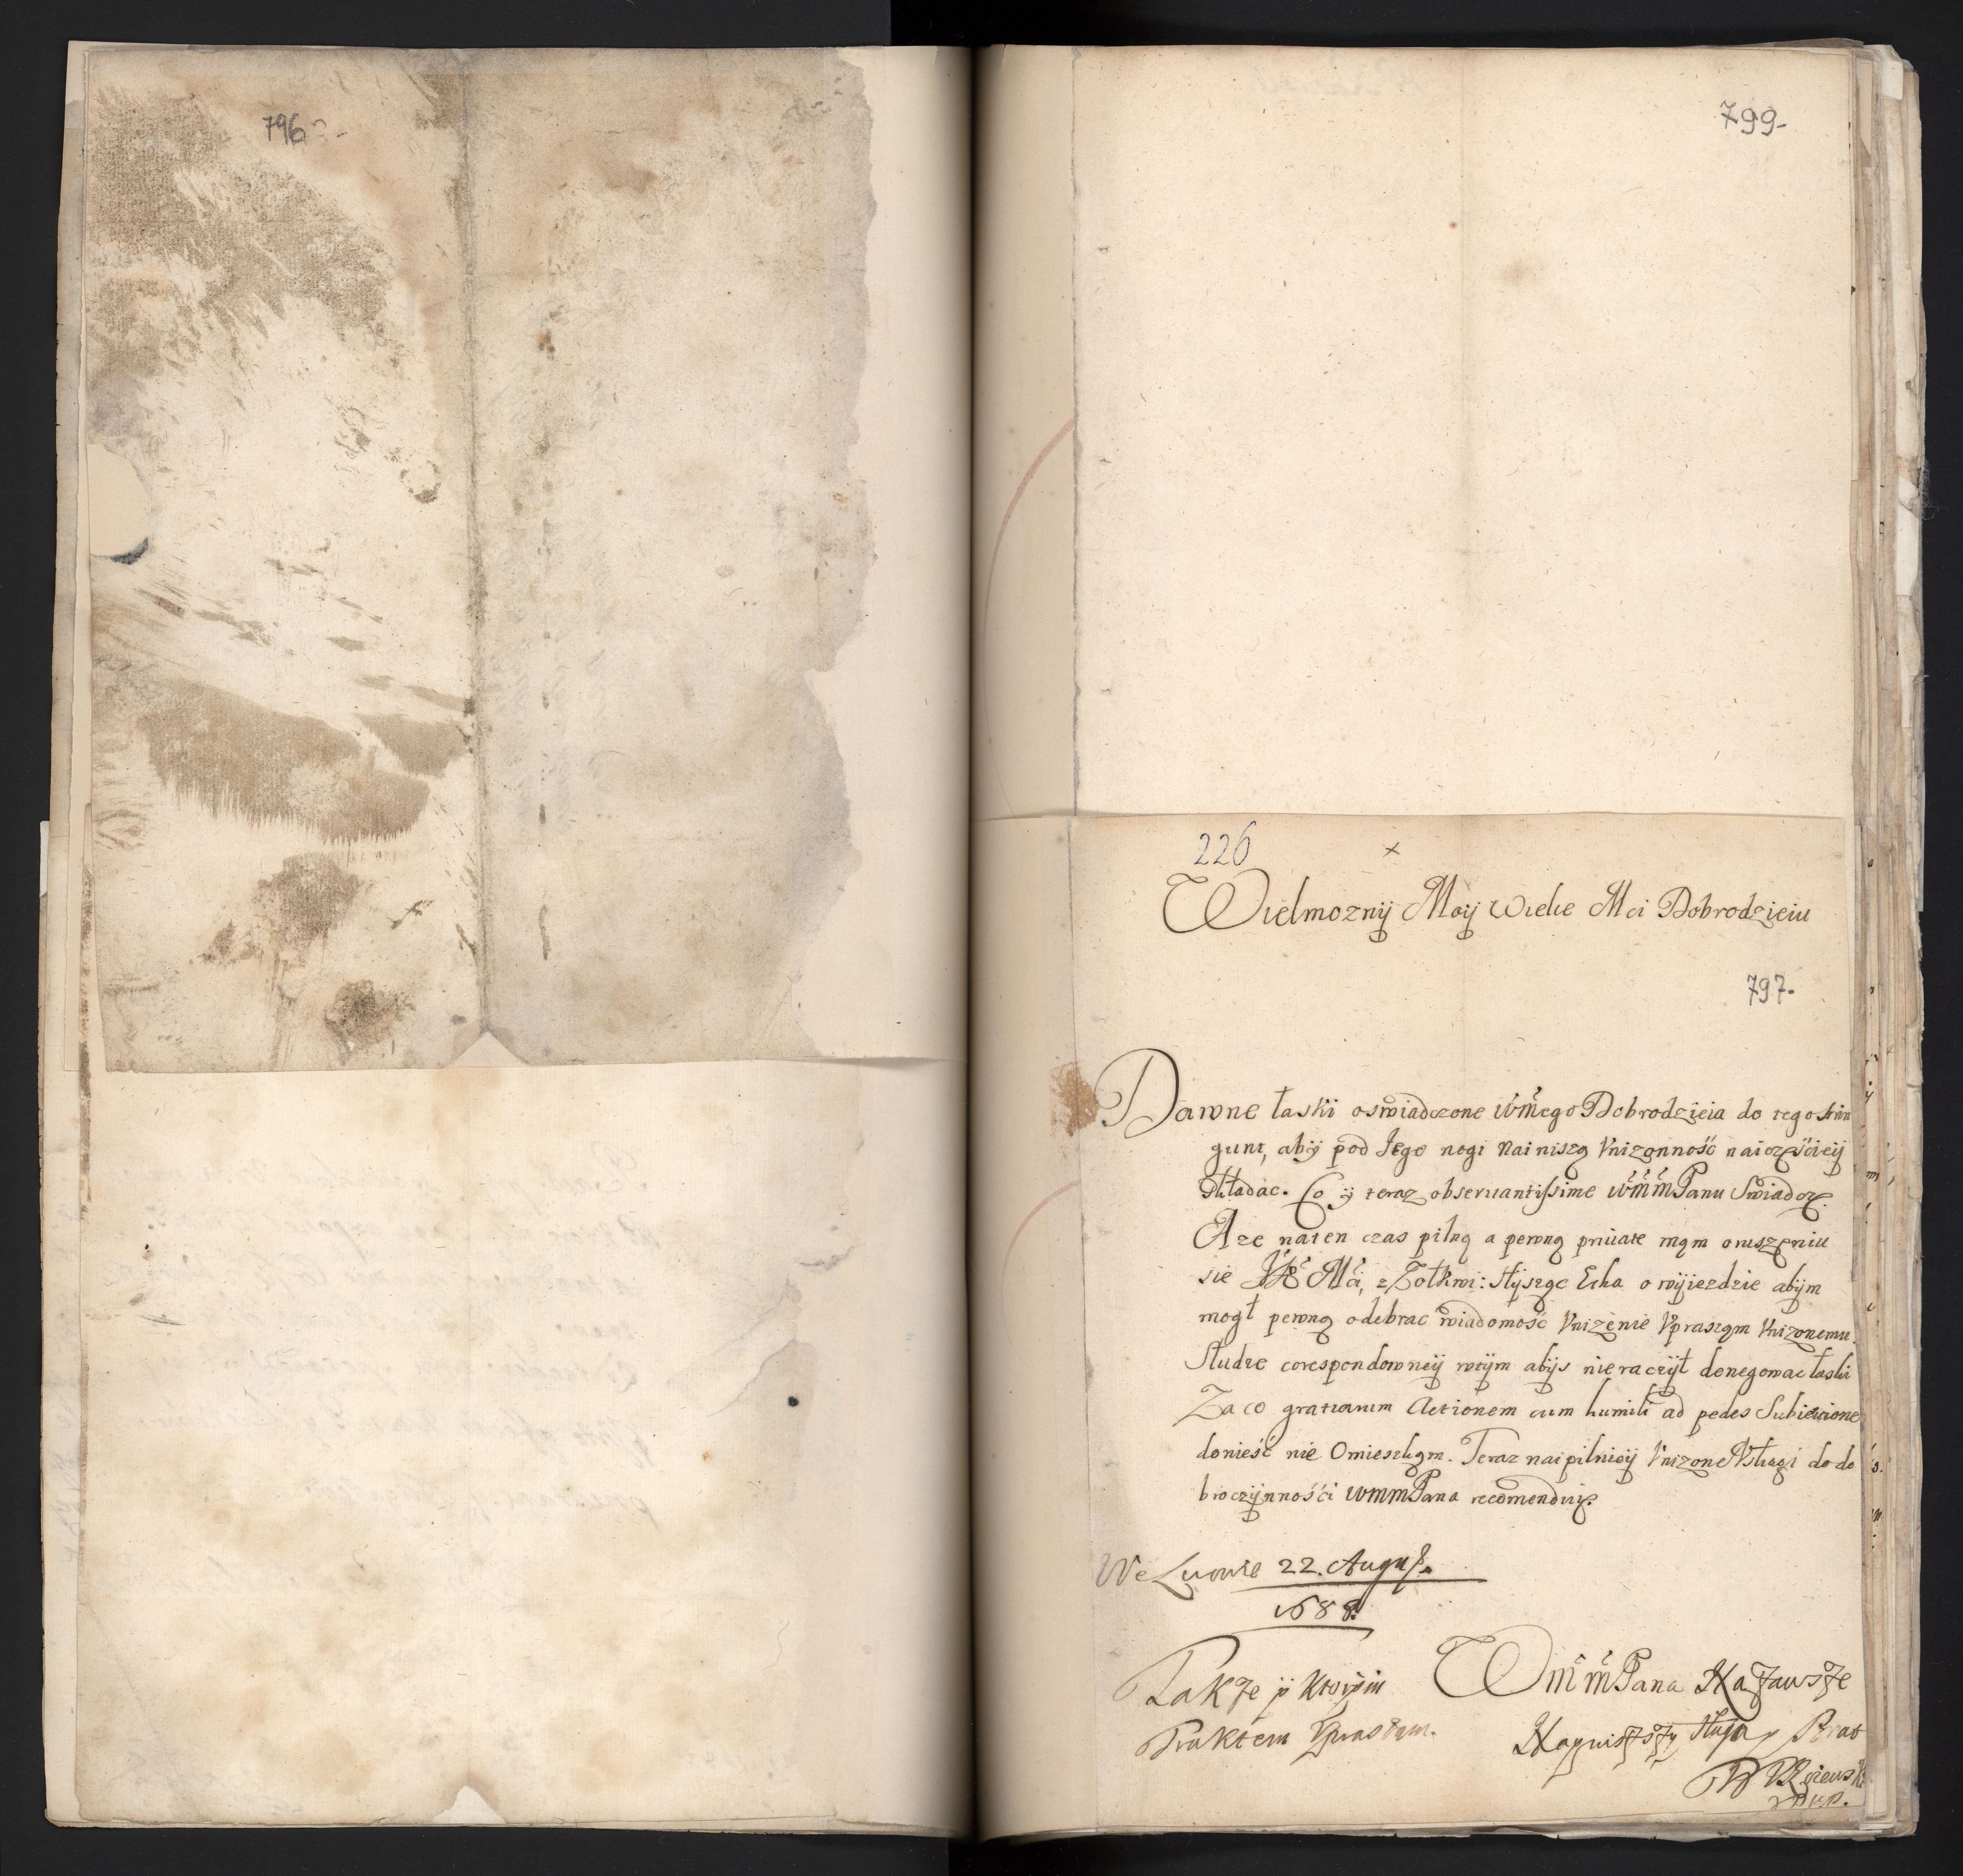 796
799-
226
x
Wielmoznij Moij Wielie Mci Dobrodzieiu
797-
Dawne łaski oswiadczone wmego Dobrodzieia do tego strin
gunt, abij pod Iego nogi Nainiszą Vnizonność naiczęścieij
składac. Co ij teraz observantissime WmmPanu Swiadczę.
Aze naten czas pilną a pewną priuate mąm oruszeniu
sie Mci, z Zołkwi: słijsząc Echa o wijiezdzie abijm
mogł pewną odebrac wiadomość Vnizenie Vprasząm Vnizonemu
Słudze corespondowneij wtijm abijs nieraczijł denegowac łaski
Zaco gratiarum Actionem cum humili ad pedes Subiectione
donieść nie Omieszkąm. Teraz naipilnieij Vnizone Vsługi do do
broczijnnośći WmmPana recomenduię.
We Lwowie 22. Augus.
1688.
Takze ij Ktorijm
Traktem Vpraszam.
WmmPana Na Zawsze
Naÿnizszÿ Sługa ÿ Brat
mp.